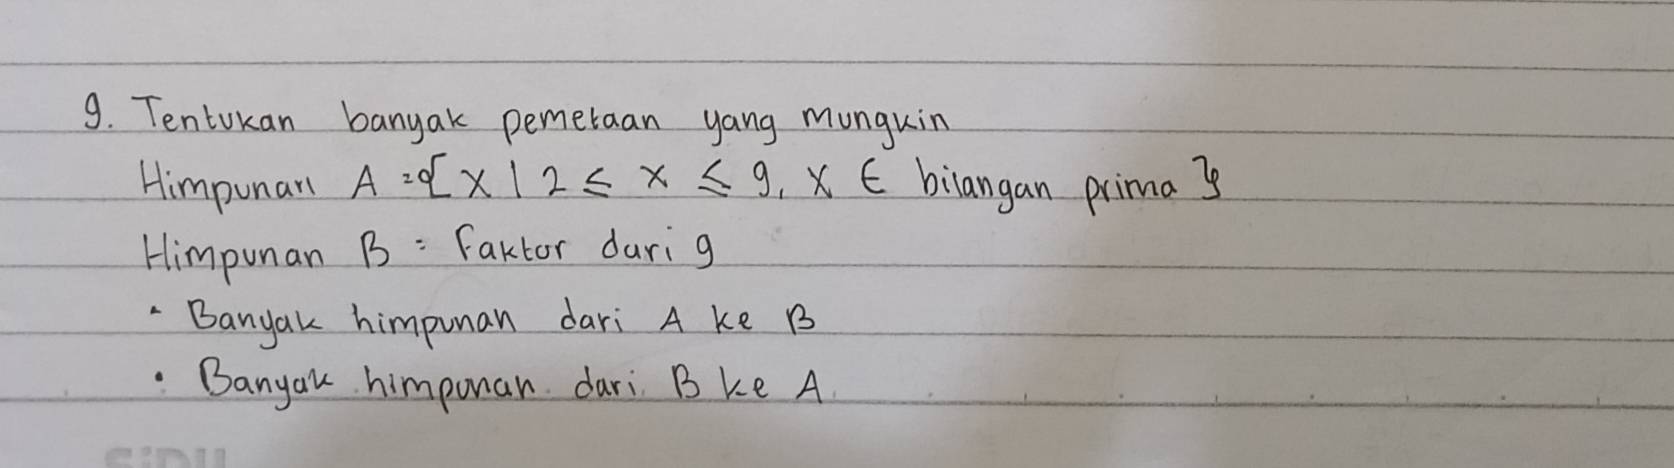 9. Tentukan banyak pemetaan yang mungkin
Himpunan A = { x | 2 ≤ x ≤ 9, x ∈ bilangan prima }
Himpunan B = faktor dari 9
• Banyak himpunan dari A ke B
• Banyak himpunan dari B ke A
SiDU